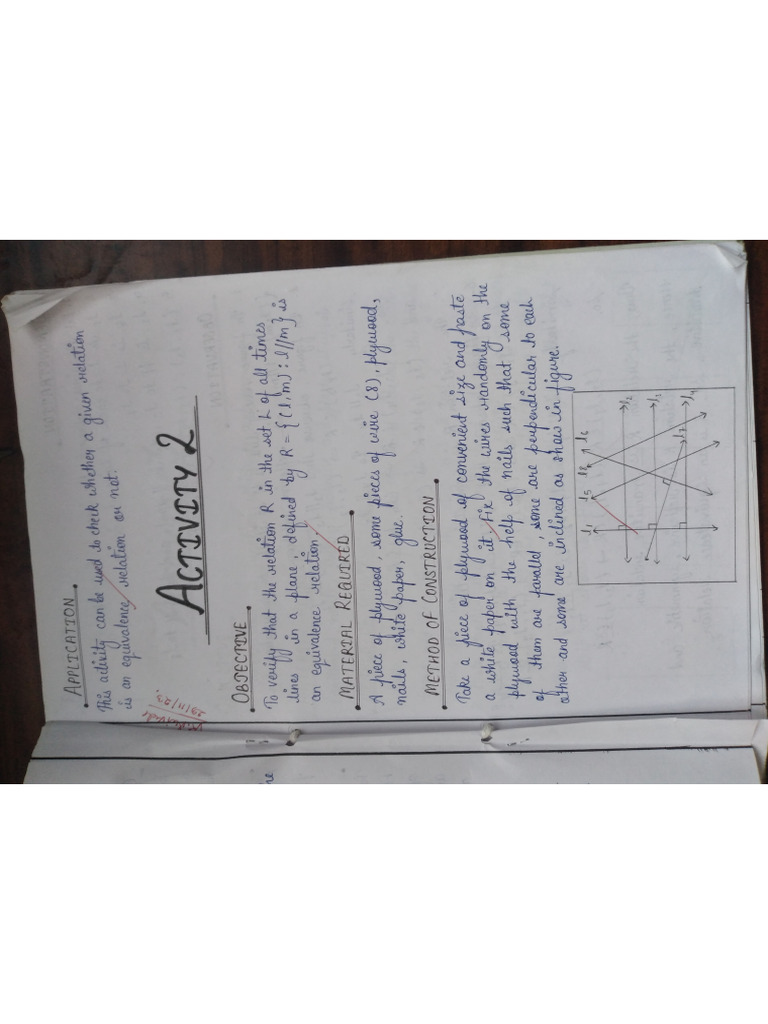 APPLICATION
This activity can be used to check whether a given relation
is an equivalence relation or not.
29/11/23
ACTIVITY 2
OBJECTIVE
To verify that the relation R in the set L of all times
lines in a plane, defined by R = {(l,m) : l//m} is
an equivalence relation.
MATERIAL REQUIRED
A piece of plywood, some pieces of wire (8), plywood,
nails, white paper, glue.
METHOD OF CONSTRUCTION
Take a piece of plywood of convenient size and paste
a white paper on it. Fix the wires randomly on the
plywood with the help of nails such that some
of them are parallel, some are perpendicular to each
other and some are inclined as show in figure.
l1 l5 l8 l6
l2
l3
l7 l4